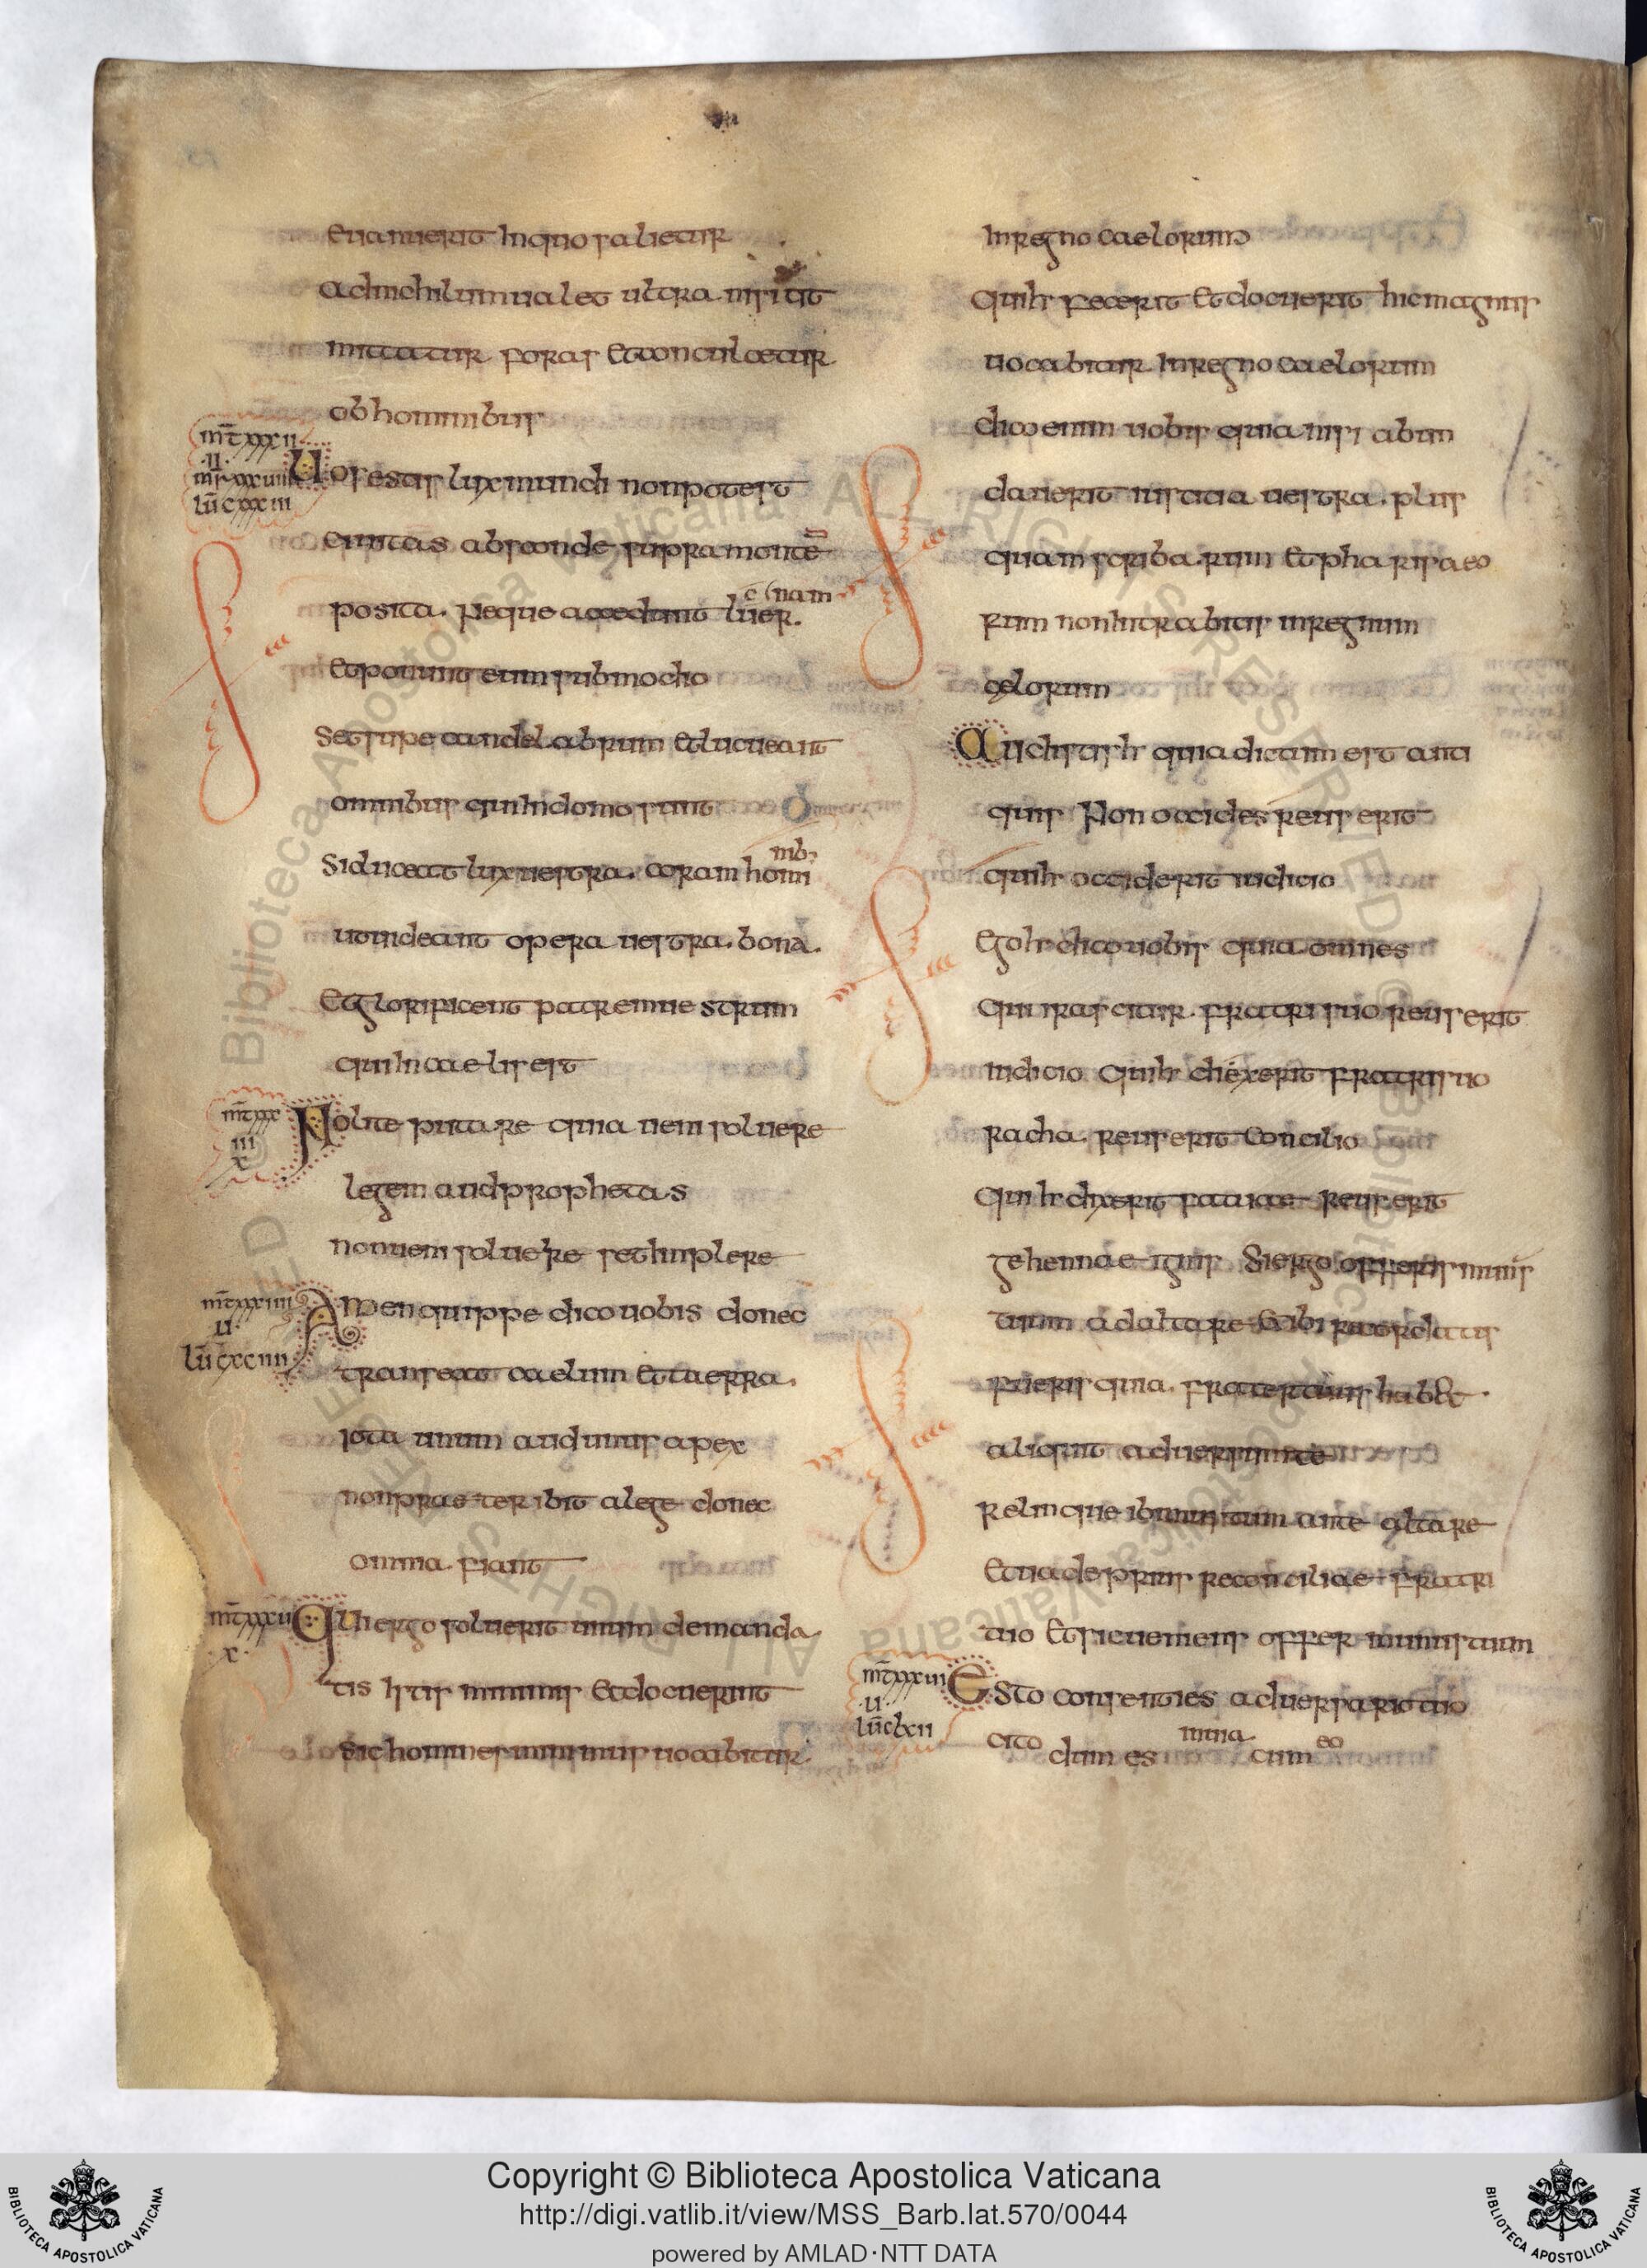 euanuerit In quo salietur
ad nichilum ualet ultra nisi ut
mittatur foras et conculcetur
ob hominibus
mt xxxii
u
mr xxuiiii
lu cxxxiii
Uos estis lux mundi non potest
ciuitas abscondi supra monte
posita. Neque accedunt lucer.
nam
et ponunt eum sub modio
Set supe candelabrum et luceant
omnibus qui In domo sunt
Sic luceat lux uestra. coram homi
nib;
ut uideant opera uestra. bona.
Et glorificent patrem uestrum
qui In caelis est
mt xxx
iii
x
Nolite putare quia ueni soluere
legem aud prophetas
non ueni soluere set Implere
mt xxiiii
u
lu cxciiii
Amen quippe dico uobis donec
transeat caelum et terra.
iota unum aud unus apex
non praeteribit a lege donec
omnia fiant
mt xxxu
x
Qui ergo soluerit unum de manda
tis Istis minimis et docuerint
Sic homines minimus uocabitur
In regno caelorum
qui hr fecerit et docuerit hic magnus
uocabitur In regno caelorum
dico enim uobis quia nisi abun
dauerit iustitia uestra. plus
quam scribarum et pharisaeo
rum non Intrabitis in regnum
celorum
Audistis hr quia dictum est anti
quis Non occides reus erit
qui hr occiderit iudicio
Ego hr dico uobis quia omnes
qui irascitur. fratri suo reus erit
iudicio qui hr dixerit fratri suo
racha. reus erit concilio
qui hr dixerit fatuae reus erit
gehennae ignis Si ergo offeris munus
tuum ad altare et ibi recordatus
fueris quia. frater tuus habet.
aliquit aduersum te
Relinque ibi munus tuum ante altare
et uade prius reconciliae fratri
tuo et sic ueniens offer munus tuum
mt xxxui
u
lu clxii
Esto consenties aduersario tuo
cito dum es in uia cum eo
Copyright © Biblioteca Apostolica Vaticana
http://digi.vatlib.it/view/MSS_Barb.lat.570/0044
powered by AMLAD·NTT DATA
BIBLIOTECA APOSTOLICA VATICANA
BIBLIOTECA APOSTOLICA VATICANA